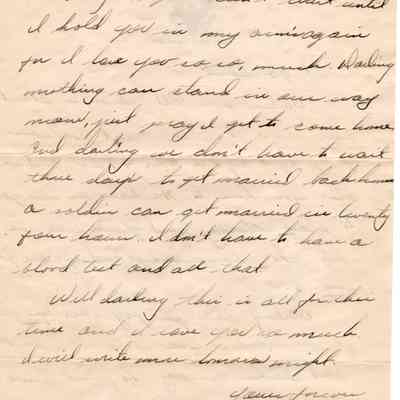 until
I hold you in my arms again
for I love you so, so, much. Darling
nothing can stand in our way
now, just pray I get to come home
And darling we don't have to wait
three days to get married back home
a soldier can get married in twenty
four hours. I don't have to have a
blood test and all that
Well darling this is all for this
time and I love you so much
I will write more tomorrow night.
Yours forever